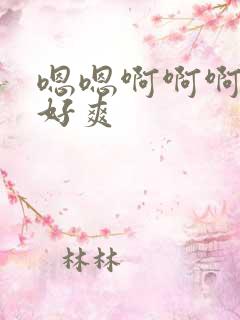 嗯嗯啊啊啊
好爽
林林